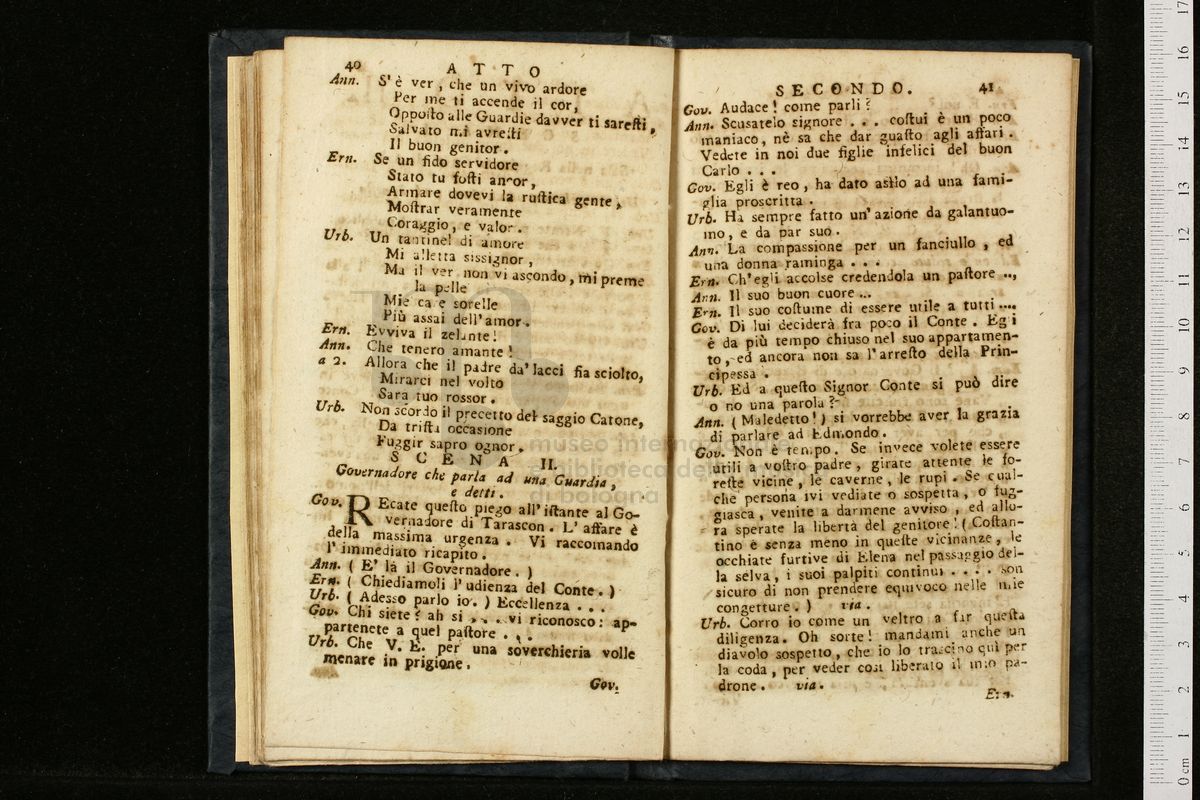 40 ATTO
Ann. S' è ver, che un vivo ardore
Per me ti accende il cor,
Opposto alle Guardie davver ti saresti,
Salvato mi avresti
Il buon genitor.
Ern. Se un fido servidore
Stato tu fosti ancor,
Armare dovevi la rustica gente,
Mostrar veramente
Coraggio, e valor.
Urb. Un tantinel di amore
Mi alletta sissignor,
Ma il ver non vi ascondo, mi preme
la pelle
Mie care sorelle
Più assai dell'amor.
Ern. Evviva il zelante!
Ann. Che tenero amante!
a 2. Allora che il padre da' lacci fia sciolto,
Mirarci nel volto
Sarà tuo rossor.
Urb. Non scordo il precetto del saggio Catone,
Da trista occasione
Fuggir saprò ognor.
SCENA II.
Governadore che parla ad una Guardia,
e detti.
Gov. REcate questo piego all' istante al Go-
vernadore di Tarascon. L' affare è
della massima urgenza. Vi raccomando
l' immediato ricapito.
Ann. ( E' là il Governadore. )
Ern. ( Chiediamoli l' udienza del Conte. )
Urb. ( Adesso parlo io. ) Eccellenza . . .
Gov. Chi siete? ah si . . . vi riconosco: ap-
partenete a quel pastore . . .
Urb. Che V. E. per una soverchieria volle
menare in prigione.
Gov.
SECONDO. 41
Gov. Audace! come parli?
Ann. Scusatelo signore . . . costui è un poco
maniaco, nè sa che dar guasto agli affari.
Vedete in noi due figlie infelici del buon
Carlo . . .
Gov. Egli è reo, ha dato asilo ad una fami-
glia proscritta.
Urb. Ha sempre fatto un' azione da galantuo-
mo, e da par suo.
Ann. La compassione per un fanciullo, ed
una donna raminga . . .
Ern. Ch'egli accolse credendola un pastore ..,
Ann. Il suo buon cuore ...
Ern. Il suo costume di essere utile a tutti ....
Gov. Di lui deciderà fra poco il Conte. Egli
è da più tempo chiuso nel suo appartamen-
to, ed ancora non sa l'arresto della Prin-
cipessa.
Urb. Ed a questo Signor Conte si può dire
o no una parola?
Ann. ( Maledetto! ) si vorrebbe aver la grazia
di parlare ad Edmondo.
Gov. Non è tempo. Se invece volete essere
utili a vostro padre, girate attente le fo-
reste vicine, le caverne, le rupi. Se qual-
che persona ivi vediate o sospetta, o fug-
giasca, venite a darmene avviso, ed allo-
ra sperate la libertà del genitore! ( Costan-
tino è senza meno in queste vicinanze, le
occhiate furtive di Elena nel passaggio del-
la selva, i suoi palpiti continui . . . . son
sicuro di non prendere equivoco nelle mie
congetture. ) via.
Urb. Corro io come un veltro a far questa
diligenza. Oh sorte! mandami anche un
diavolo sospetto, che io lo trascino quì per
la coda, per veder così liberato il mio pa-
drone. via.
Ern.
museo internazionale
e biblioteca della musica
di bologna